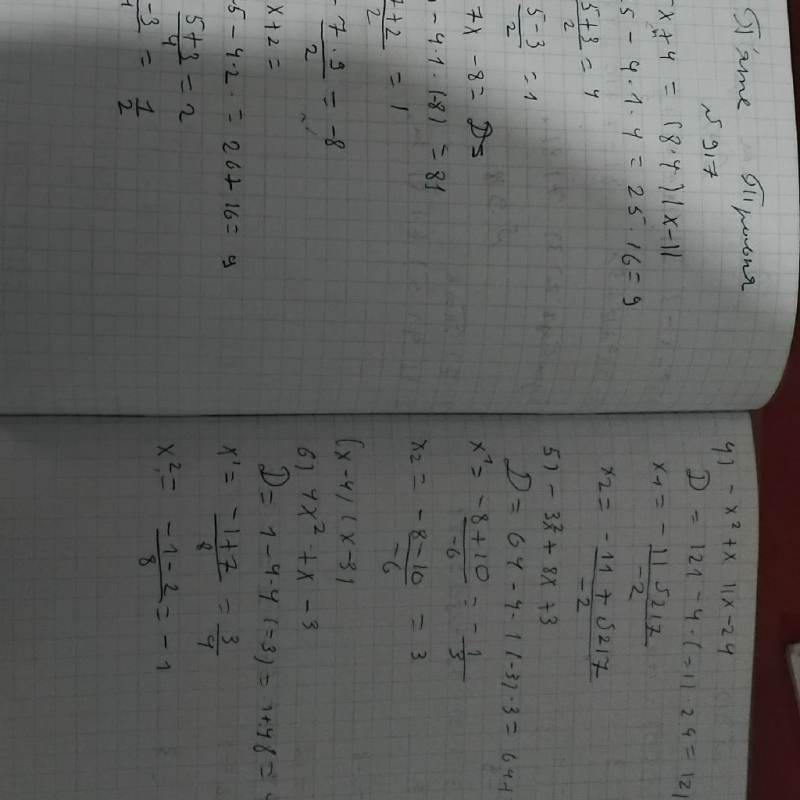 П'яте Травня
№ 917
x+4 = (8·4)(x-11
5 - 4·1·4 = 25·16=9
5+3/2 = 4
5-3/2 = 1
7x - 8 = D=
- 4·1·(-8) = 81
7+2/2 = 1
- 7·9/2 = -8
x+2 =
5 - 4·2· = 26+16= 9
5+3/4 = 2
-3/4 = 1/2
4) - x² + x 11x-24
D = 121 - 4·(-1)·24 = 121
x1 = - 11 5217/-2
x2 = - 11 + 5217/-2
5) - 3x² + 8x + 3
D = 64 - 4·1(-3)·3 = 64+
x1 = -8+10/-6 = - 1/3
x2 = -8-10/-6 = 3
(x-4)(x-3)
6) 4x² + x - 3
D = 1 - 4·4(-3) = 1+48 = 4
x1 = -1+7/8 = 3/4
x2 = -1-2/8 = -1